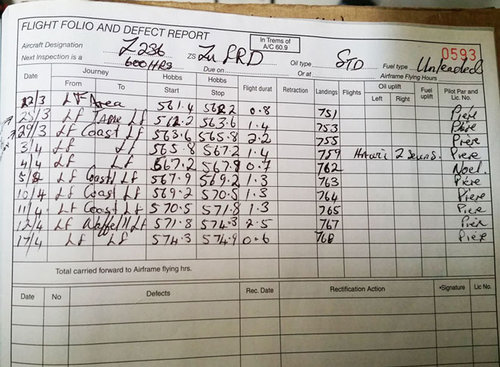 FLIGHT FOLIO AND DEFECT REPORT
In Trems of
A/C 60.9
0593
Aircraft Designation Z236 ZS Zu SRD Oil type STD Fuel type Unleaded
Next Inspection is a 600 HRS Due on Or at Airframe Flying Hours
Date Journey Hobbs Hobbs Flight durat Retraction Landings Flights Oil uplift Fuel uplift Pilot Par and Lic No.
From To Start Stop Left Right
22/3 LF Area 561.4 562.2 0.8 751 Piere
25/3 LF LF 562.2 563.6 1.4 753 Piere
29/3 LF Coast LF 563.6 565.8 2.2 755 Piere
3/4 LF LF 565.8 567.2 1.4 759 2 Piere
4/4 LF LF 567.2 567.9 0.7 762 Noel
5/4 LF Coast LF 567.9 569.2 1.3 763 Piere
10/4 LF Coast LF 569.2 570.5 1.3 764 Piere
11/4 LF Coast LF 570.5 571.8 1.3 765 Piere
12/4 LF LF 571.8 574.3 2.5 767 Piere
17/4 LF LF 574.3 574.9 0.6 768 Piere
Total carried forward to Airframe flying hrs.
Date No Defects Rec. Date Rectification Action •Signature Lic No.